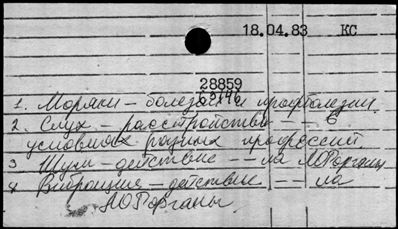 18.04.83 КС
28859
63146
1. Моряки – болезни и профболезни
2. Слух – расстройство – – в
условиях разных профессий
3 Шум – действие – – на ЛОРорганы
4 Вибрация – действие – – на
ЛОРорганы